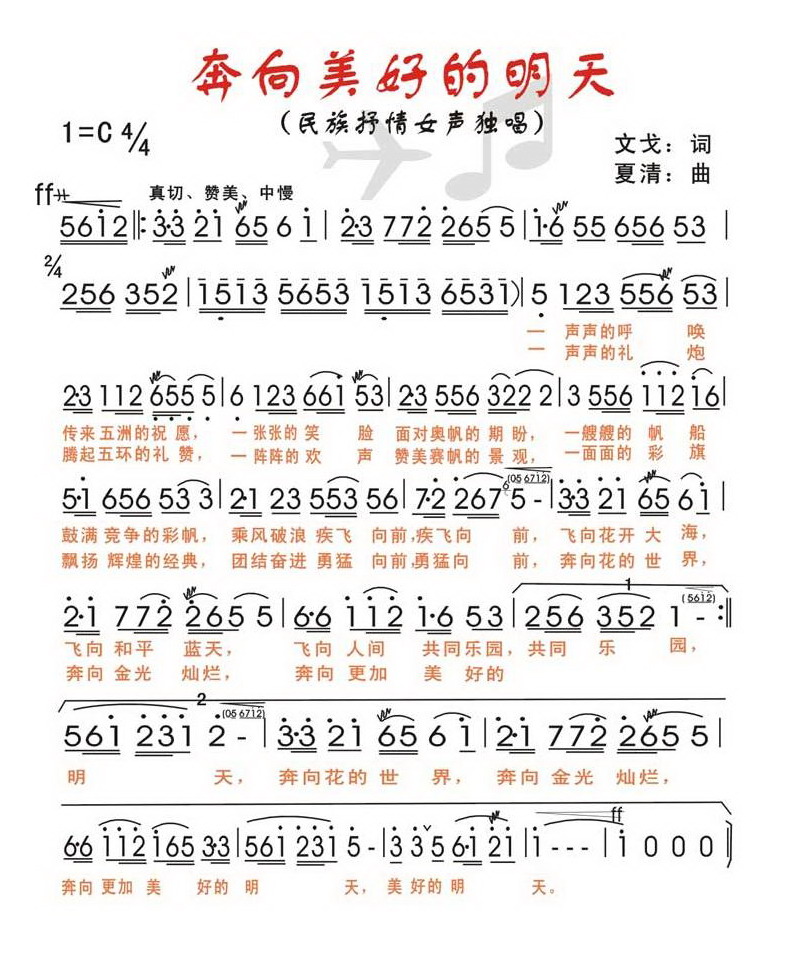 奔向美好的明天
(民族抒情女声独唱)
1=C 4/4
文戈：词
夏清：曲
ff 真切、赞美、中慢
5612 ‖: 3·3 21 65 6 1 | 2·3 772 265 5 | 1·6 55 656 53 |
2/4
256 352 | 1513 5653 1513 6531) | 5 123 556 53 |
一 声声的呼 唤
一 声声的礼 炮
2·3 112 655 5 | 6 123 661 53 | 2·3 556 322 2 | 3 556 112 16 |
传来 五洲的祝 愿， 一 张张的 笑 脸 面对奥帆的 期 盼， 一艘艘的 帆 船
腾起 五环的礼 赞， 一 阵阵的 欢 声 赞美赛帆的 景 观， 一面面的 彩 旗
5·1 656 53 3 | 2·1 23 553 56 | 7·2 2676 5 - (05 6712) | 3·3 21 65 61 |
鼓满 竞争的彩帆， 乘风破浪 疾飞 向前,疾飞向 前， 飞向花开 大 海，
飘扬 辉煌的经典， 团结奋进 勇猛 向前,勇猛向 前， 奔向花的 世 界，
1 (5612)
2·1 772 265 5 | 6·6 112 1·6 53 | 256 352 1 - :‖
飞向 和平 蓝天， 飞向 人间 共同乐园，共同 乐 园，
奔向 金光 灿烂， 奔向 更加 美 好的
2 (05 6712)
561 231 2 - | 3·3 21 65 6 1 | 2·1 772 265 5 |
明 天， 奔向花的 世 界， 奔向 金光 灿烂，
ff
6·6 112 165 3·3 | 561 231 5 - | 3 35 6·1 21 | 1 - - - | 1 0 0 0 |
奔向 更加 美 好的 明 天，美 好的 明 天。